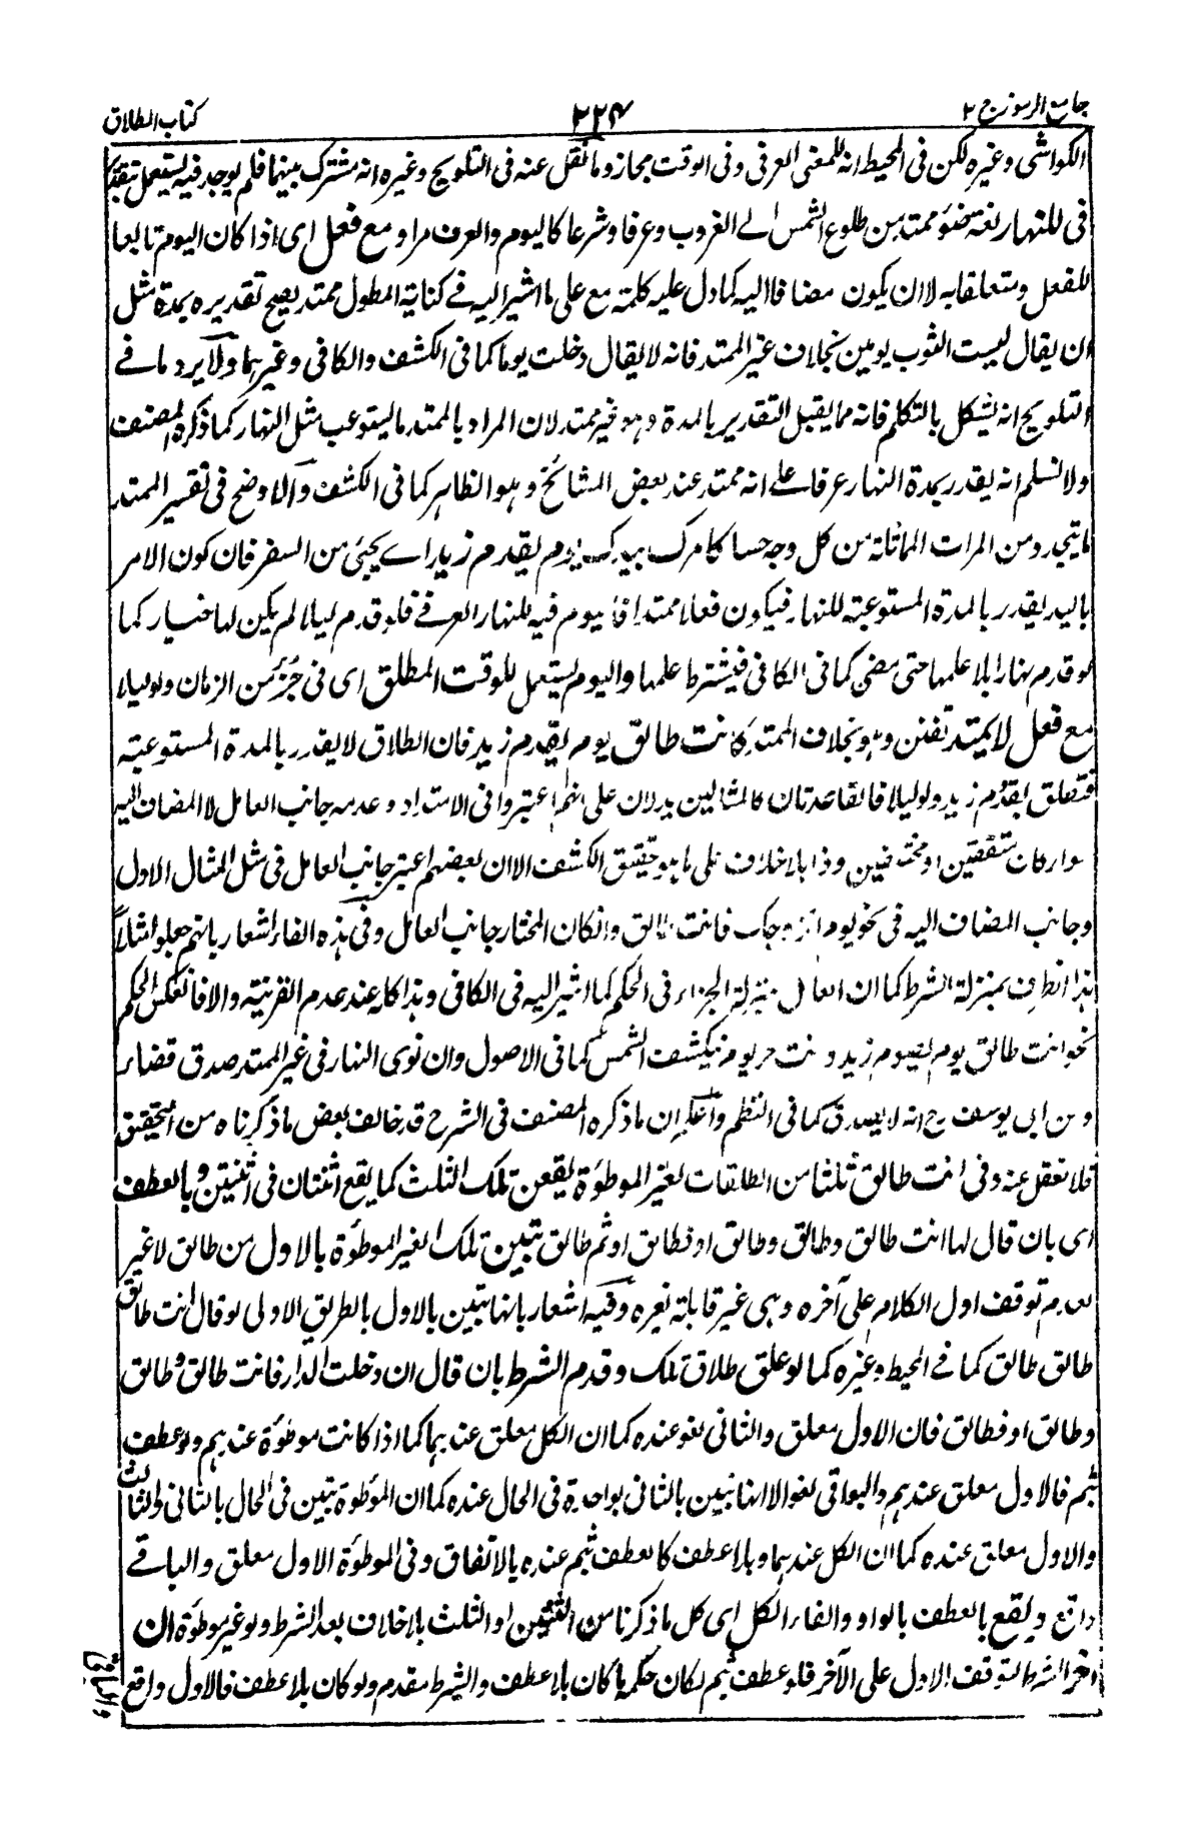 جامع الرموز ج ٢
٢٢٤
كتاب الطلاق
الكواشى وغيره لكن فى المحيط انه للمعنى العرفى وفى الوقت مجاز وما نقل عنه فى التلويح وغيره انه مشترك بينهما فلم يوجد فيه ليستعمل بتقدير
فى للنهار لغة ضوء ممتد من طلوع الشمس الى الغروب وعرفا وشرعا كاليوم والعرف مراد مع فعل اى اذا كان اليوم تابعا
للفعل ومتعلقا به لا ان يكون مضافا اليه كما دل عليه كلمة مع على ما اشير اليه فى كناية المطول ممتد يصح تقديره بمدة مثل
ان يقال لبست الثوب يومين بخلاف غير الممتد فانه لا يقال دخلت يوما كما فى الكشف والكافى وغيرهما ولا يرد ما فى
التلويح انه يشكل بالتكلم فانه مما يقبل التقدير بالمدة وهو غير ممتد لان المراد بالممتد ما يستوعب مثل النهار كما ذكره المصنف
ولا نسلم انه يقدر بمدة النهار عرفا على انه ممتد عند بعض المشائخ وهو الظاهر كما فى الكشف والاوضح فى تفسير الممتد
ما يتجدد من المرات المماثلة من كل وجه حسا كامرك بيدك يوم يقدم زيد اى يجئ من السفر فان كون الامر
باليد يقدر بالمدة المستوعبة للنهار فيكون فعلا ممتدا فاليوم فيه للنهار العرفى فلو قدم ليلا لم يكن لها خيار كما
لو قدم نهارا بلا علمها حتى مضى كما فى الكافى فيشترط علمها واليوم يستعمل للوقت المطلق اى فى جزء من الزمان ولو ليلا
مع فعل لا يمتد تفنن وهو بخلاف الممتد كانت طالق يوم يقدم زيد فان الطلاق لا يقدر بالمدة المستوعبة
فتطلق بقدوم زيد ولو ليلا فالقاعدتان كالمثالين يدلان على انهم اعتبروا فى الامتداد وعدمه جانب العامل لا المضاف اليه
سواء كانا متفقين او مختلفين وذا بلا خلاف على ما هو تحقيق الكشف الا ان بعضهم اعتبر جانب العامل فى مثل المثال الاول
وجانب المضاف اليه فى نحو يوم اتزوجك فانت طالق وان كان المختار جانب العامل وفى هذه الفاء اشعار بانهم جعلوا مثل
هذا الظرف بمنزلة الشرط كما ان العامل بمنزلة الجزاء فى الحكم كما اشير اليه فى الكافى وهذا كله عند عدم القرينة والا فانعكس الحكم
نحو انت طالق يوم يصوم زيد وانت حر يوم ينكشف الشمس كما فى الاصول وان نوى النهار فى غير الممتد صدق قضاء
وعن ابى يوسف رح انه لا يصدق كما فى النظم واعلم ان ما ذكره المصنف فى الشرح قد خالف بعض ما ذكرناه من التحقيق
فلا تغفل عنه وفى انت طالق ثلثا من الطلقات لغير الموطؤة يقعن تلك الثلث كما يقع اثنتان فى اثنتين وبالعطف
اى بان قال لها انت طالق وطالق وطالق او فطالق او ثم طالق تبين تلك الغير الموطؤة بالاول من طالق لا غير
لعدم توقف اول الكلام على آخره وهى غير قابلة لغيره وفيه اشعار بانها تبين بالاول بالطريق الاولى لو قال انت طالق
طالق طالق كما فى المحيط وغيره كما لو علق طلاق تلك وقدم الشرط بان قال ان دخلت الدار فانت طالق وطالق
وطالق او فطالق فان الاول معلق والثانى لغو عنده كما ان الكل معلق عندهما كما اذا كانت موطؤة عندهم ولو عطف
بثم فالاول معلق عندهم والبواقى لغو الا انها تبين بالثانى بواحدة فى الحال عنده كما ان الموطؤة تبين فى الحال بالثانى والثالث
والاول معلق عنده كما ان الكل عندهما وبلا عطف كالعطف بثم عنده بالاتفاق وفى الموطؤة الاول معلق والباقى
واقع ويقع بالعطف بالواو والفاء الكل اى كل ما ذكرنا من الثنتين او الثلث بلا خلاف بعد الشرط ولو غير موطؤة ان
اخر الشرط لتوقف الاول على الآخر فلو عطف بثم لكان حكمه ما كان بلا عطف والشرط مقدم ولو كان بلا عطف فالاول واقع
والباقى